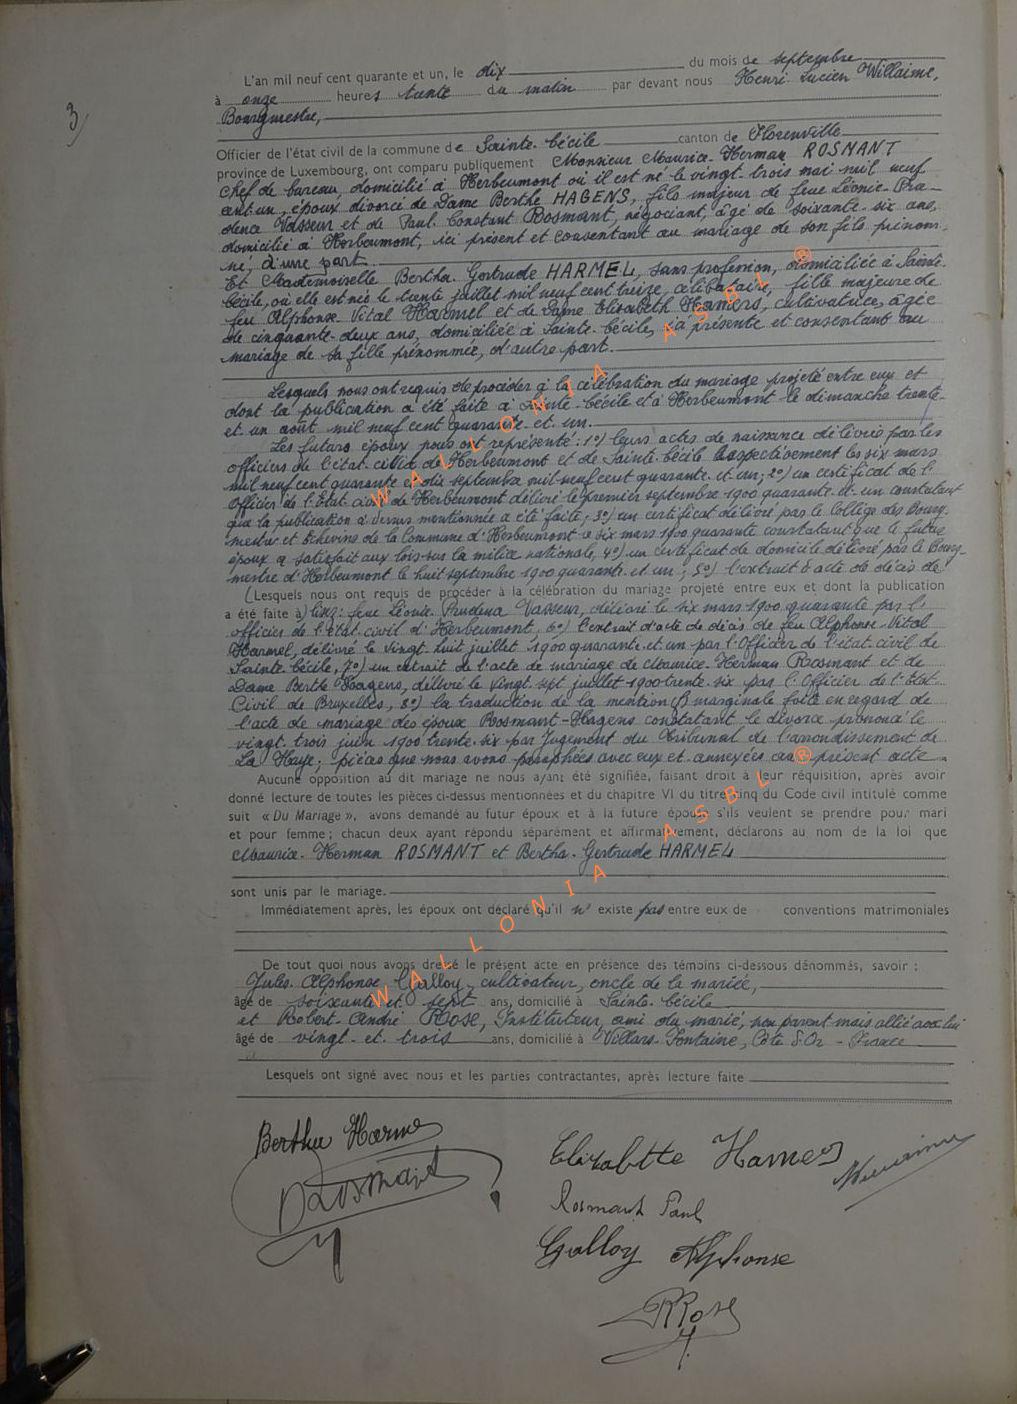 3/
L'an mil neuf cent quarante et un, le dix du mois de septembre
à onze heures trente du matin par devant nous Henri Lucien Willaime,
Bourgmestre,
Officier de l'état civil de la commune de Sainte-Cécile canton de Florenville
province de Luxembourg, ont comparu publiquement Monsieur Maurice-Herman ROSMANT
chef de bureau, domicilié à Herbeumont où il est né le vingt-trois mai mil neuf
cent un, époux divorcé de Dame Berthe HAGENS, fils majeur de feue Léonie-Pru-
dence Vasseur et de Paul Constant Rosmant, négociant, âgé de soixante-six ans,
domicilié à Herbeumont, ici présent et consentant au mariage de son fils prénom-
mé, d'une part.
Et Mademoiselle Bertha-Gertrude HARMEL, sans profession, domiciliée à Sainte-
Cécile, où elle est née le trente juillet mil neuf cent treize, célibataire, fille majeure de
feu Alphonse-Vital Harmel et de Dame Elisabeth Hamers, cultivatrice, âgée
de cinquante-deux ans, domiciliée à Sainte-Cécile, ici présente et consentant au
mariage de sa fille prénommée, d'autre part.
Lesquels nous ont requis de procéder à la célébration du mariage projeté entre eux et
dont la publication a été faite à Sainte-Cécile et à Herbeumont le dimanche trente-
et un août mil neuf cent quarante-et-un.
Les futurs époux nous ont représenté: 1°) leurs actes de naissance délivrés par les
officiers de l'état civil de Herbeumont et de Sainte-Cécile respectivement les six mars
mil neuf cent quarante et dix septembre mil neuf cent quarante-et-un; 2°) un certificat de l'
Officier de l'Etat civil de Herbeumont délivré le premier septembre 1900 quarante-et-un constatant
que la publication a dessus mentionnée a été faite; 3°) un certificat délivré par le Collège des Bourg-
mestre et Echevins de la Commune d'Herbeumont le six mars 1900 quarante constatant que le futur
époux a satisfait aux lois sur la milice nationale, 4°) un certificat de domicile délivré par le Bourg-
mestre d'Herbeumont le huit septembre 1900 quarante-et-un; 5°) l'extrait d'acte de décès de
(Lesquels nous ont requis de procéder à la célébration du mariage projeté entre eux et dont la publication
a été faite à) feue Léonie-Prudence Vasseur, délivré le six mars 1900 quarante par l'
officier de l'état civil d'Herbeumont, 6°) l'extrait d'acte de décès de feu Alphonse-Vital
Harmel, délivré le vingt-huit juillet 1900 quarante-et-un par l'Officier de l'état civil de
Sainte-Cécile, 7°) un extrait de l'acte de mariage de Maurice-Herman Rosmant et de
Dame Berthe Hagens, délivré le vingt-sept juillet 1900 trente-six par l'Officier de l'Etat
Civil de Bruxelles, 8°) la traduction de la mention marginale faite en regard de
l'acte de mariage des époux Rosmant-Hagens constatant le divorce prononcé le
vingt-trois juin 1900 trente-six par Jugement du Tribunal de l'arrondissement de
La Haye; pièces que nous avons paraphées avec eux et annexées au présent acte.
Aucune opposition au dit mariage ne nous ayant été signifiée, faisant droit à leur réquisition, après avoir
donné lecture de toutes les pièces ci-dessus mentionnées et du chapitre VI du titre cinq du Code civil intitulé comme
suit « Du Mariage », avons demandé au futur époux et à la future épouse s'ils veulent se prendre pour mari
et pour femme ; chacun deux ayant répondu séparément et affirmativement, déclarons au nom de la loi que
Maurice-Herman ROSMANT et Bertha-Gertrude HARMEL
sont unis par le mariage.
Immédiatement après, les époux ont déclaré qu'il n' existe pas entre eux de conventions matrimoniales
De tout quoi nous avons dressé le présent acte en présence des témoins ci-dessous dénommés, savoir :
Jules-Alphonse Galloy, cultivateur, oncle de la mariée,
âgé de soixante et sept ans, domicilié à Sainte-Cécile
et Robert-André ROSE, Instituteur, ami du marié, non parent mais allié avec lui
âgé de vingt-et-trois ans, domicilié à Villars-Fontaine, Côte d'Or - France
Lesquels ont signé avec nous et les parties contractantes, après lecture faite
Berthe Harmel
Elisabette Hamers
Willaime
Rosmant
Rosmant Paul
Galloy Alphonse
RRose
WALLONIA ASBL®
WALLONIA ASBL®